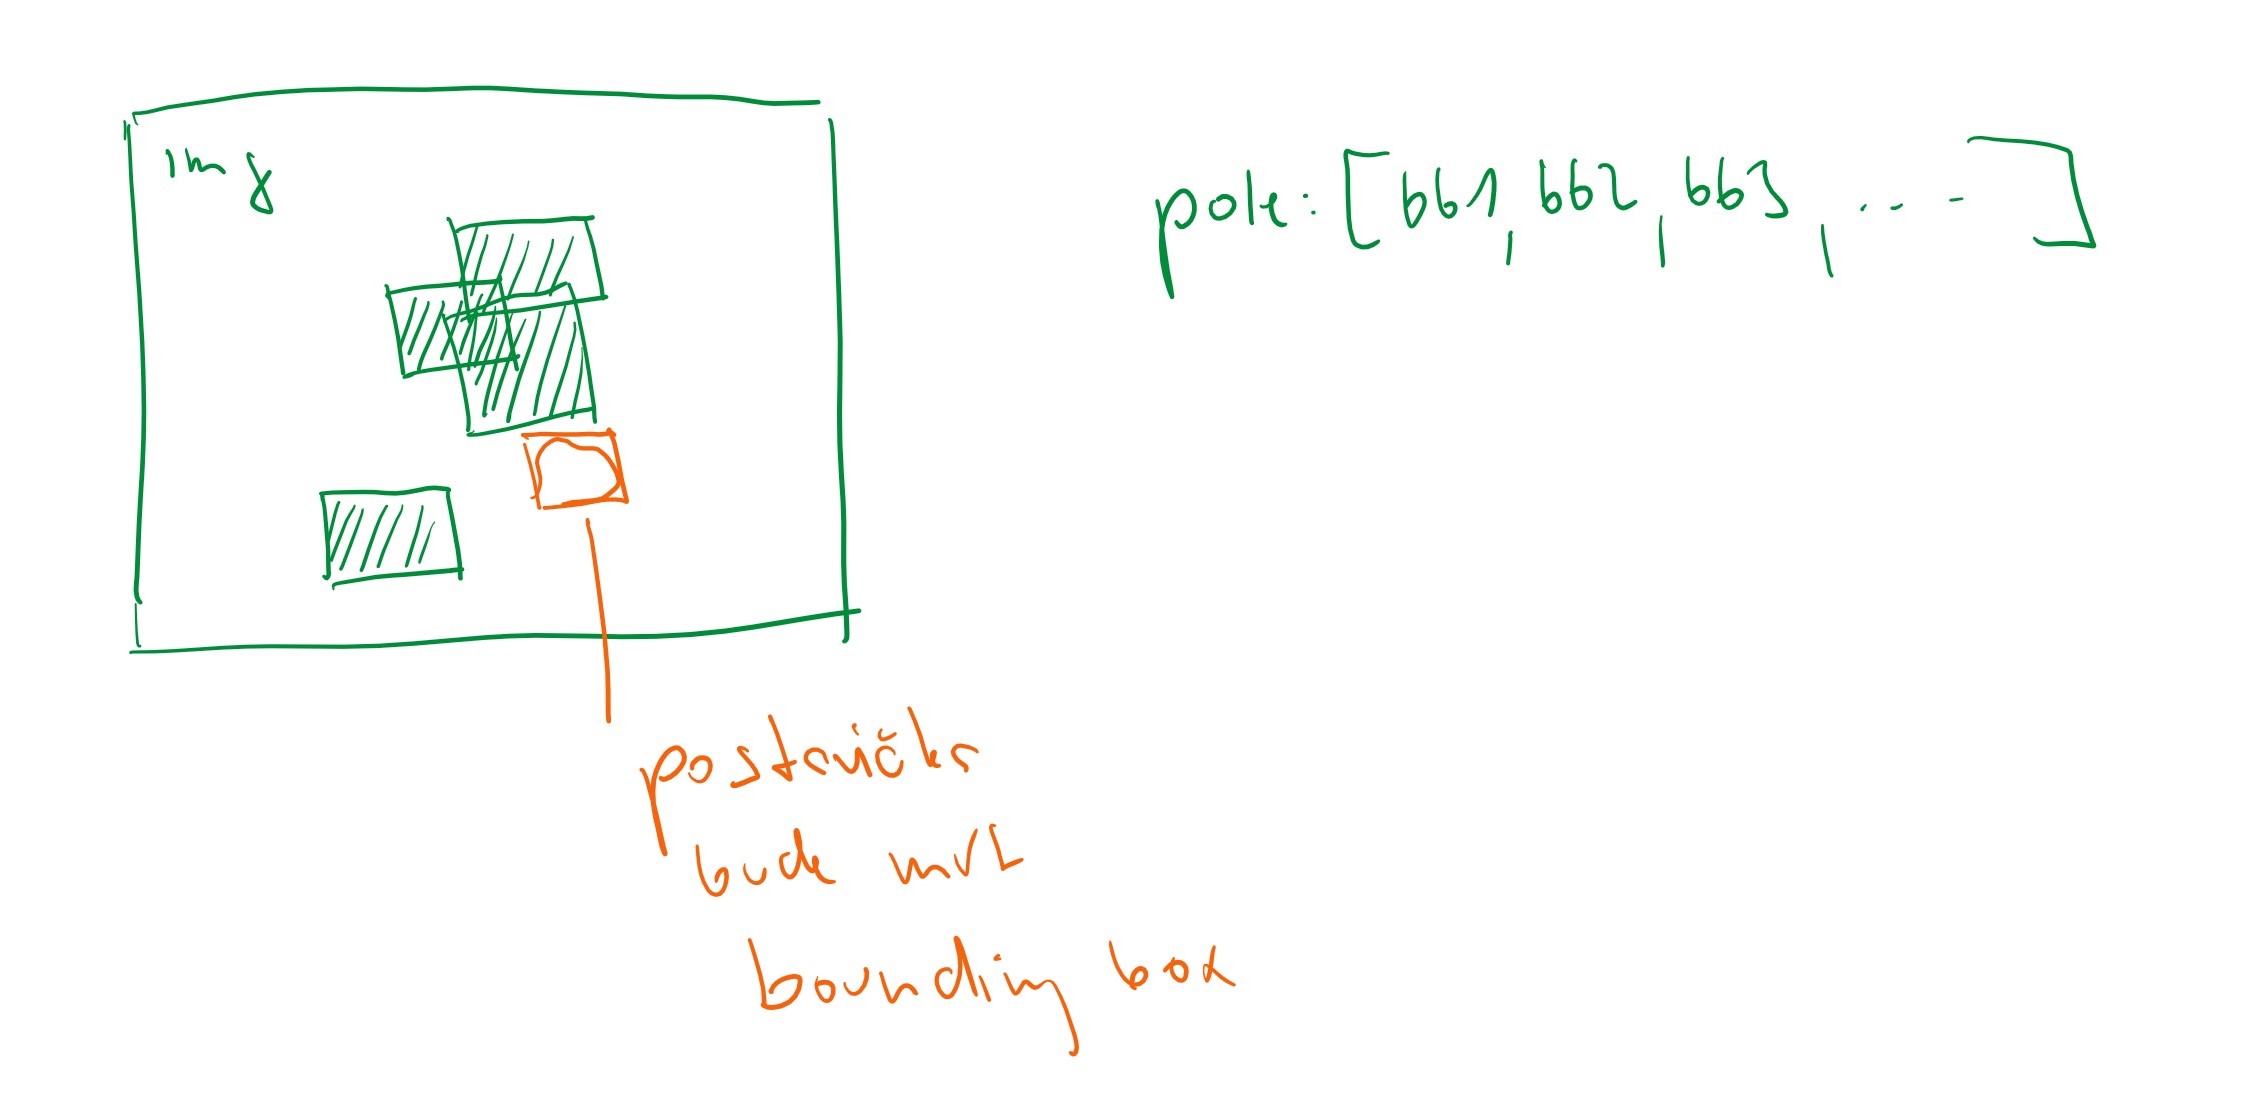 img
pole: [bb1, bb2, bb3, ... ]
postavička
bude mít
bounding box